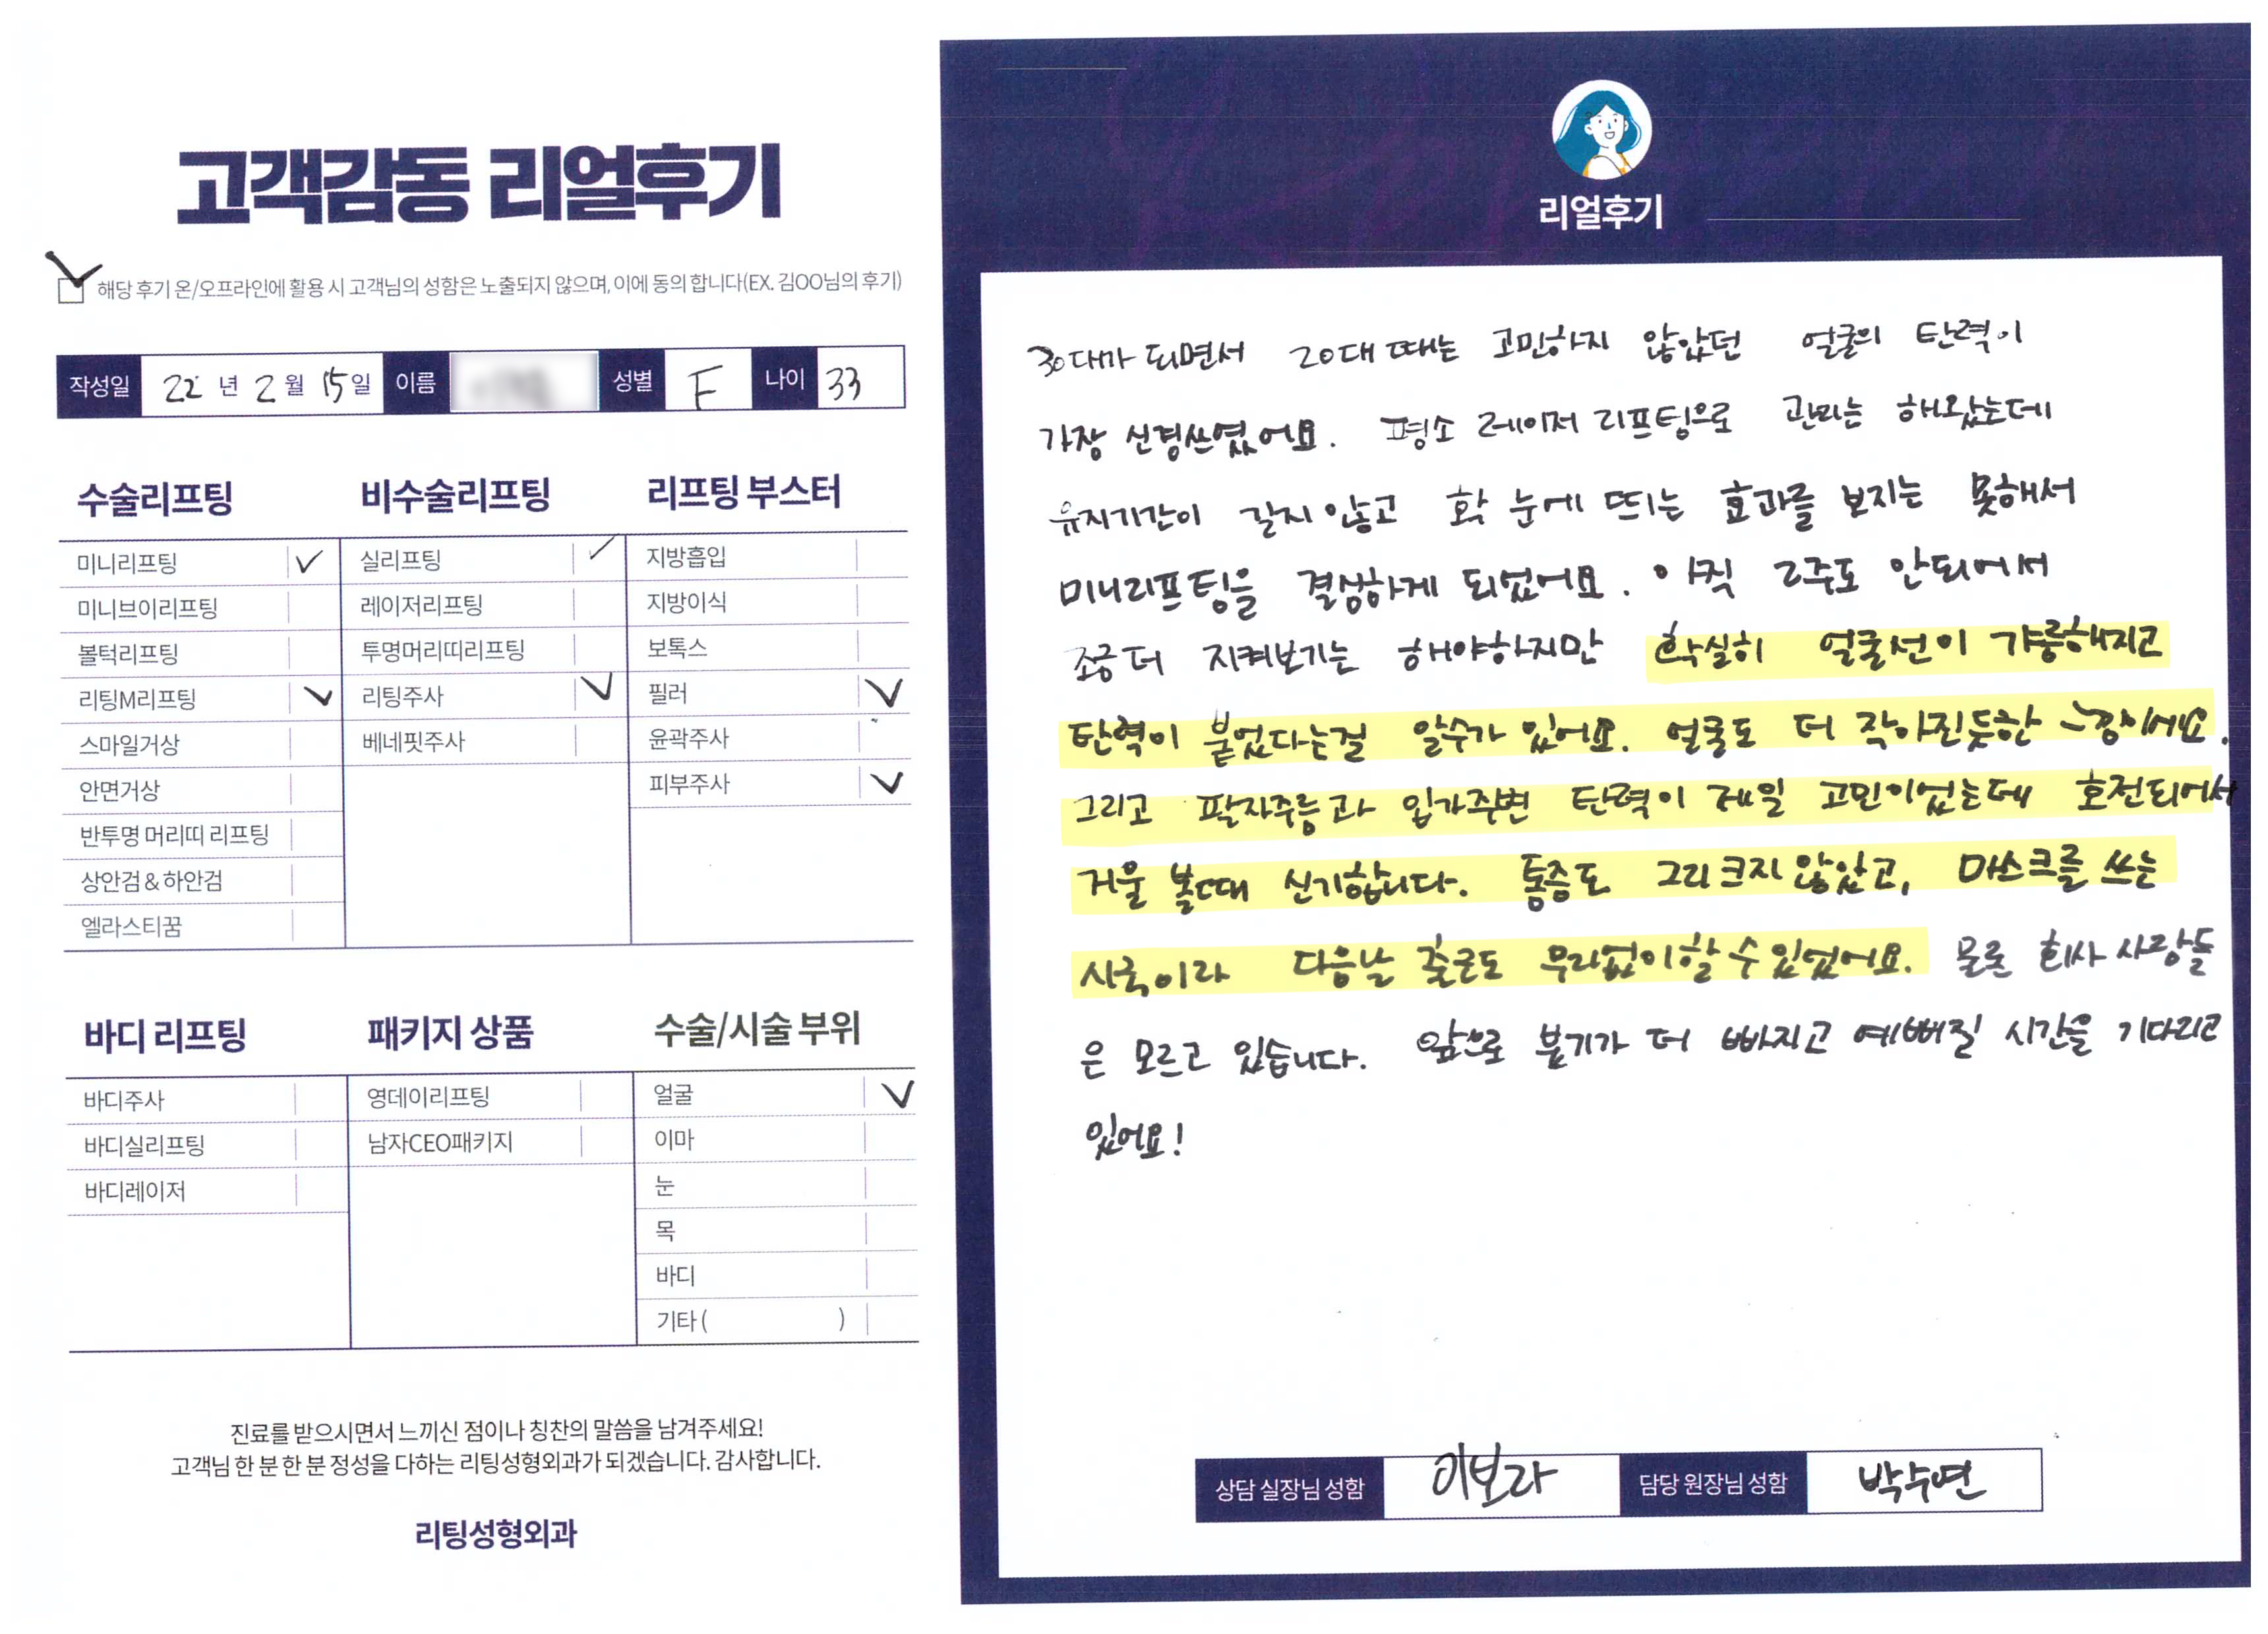 고객감동 리얼후기
해당 후기 온/오프라인에 활용 시 고객님의 성함은 노출되지 않으며, 이에 동의 합니다(EX. 김OO님의 후기)
작성일 22 년 2 월 15 일 이름 성별 F 나이 33
수술리프팅
미니리프팅 ✓
미니브이리프팅
볼턱리프팅
리팅M리프팅 ✓
스마일거상
안면거상
반투명 머리띠 리프팅
상안검 & 하안검
엘라스티꿈
비수술리프팅
실리프팅 ✓
레이저리프팅
투명머리띠리프팅
리팅주사 ✓
베네핏주사
리프팅 부스터
지방흡입
지방이식
보톡스
필러 ✓
윤곽주사
피부주사 ✓
바디 리프팅
바디주사
바디실리프팅
바디레이저
패키지 상품
영데이리프팅
남자CEO패키지
수술/시술 부위
얼굴 ✓
이마
눈
목
바디
기타 ( )
진료를 받으시면서 느끼신 점이나 칭찬의 말씀을 남겨주세요!
고객님 한 분 한 분 정성을 다하는 리팅성형외과가 되겠습니다. 감사합니다.
리팅성형외과
리얼후기
30대가 되면서 20대 때는 고민하지 않았던 얼굴의 탄력이
가장 신경쓰였어요. 평소 레이저 리프팅으로 관리는 해왔는데
유지기간이 길지 않고 확 눈에 띄는 효과를 보지는 못해서
미니리프팅을 결심하게 되었어요. 아직 2주도 안되어서
조금 더 지켜보기는 해야하지만 확실히 얼굴선이 갸름해지고
탄력이 붙었다는걸 알수가 있어요. 얼굴도 더 작아진듯한 느낌이에요.
그리고 팔자주름과 입가주변 탄력이 제일 고민이었는데 호전되어서
거울 볼때 신기합니다. 통증도 그리 크지 않았고, 마스크를 쓰는
시국이라 다음날 출근도 무리없이 할 수 있었어요. 물론 회사 사람들
은 모르고 있습니다. 앞으로 붓기가 더 빠지고 예뻐질 시간을 기다리고
있어요!
상담 실장님 성함 이보라 담당 원장님 성함 박수연